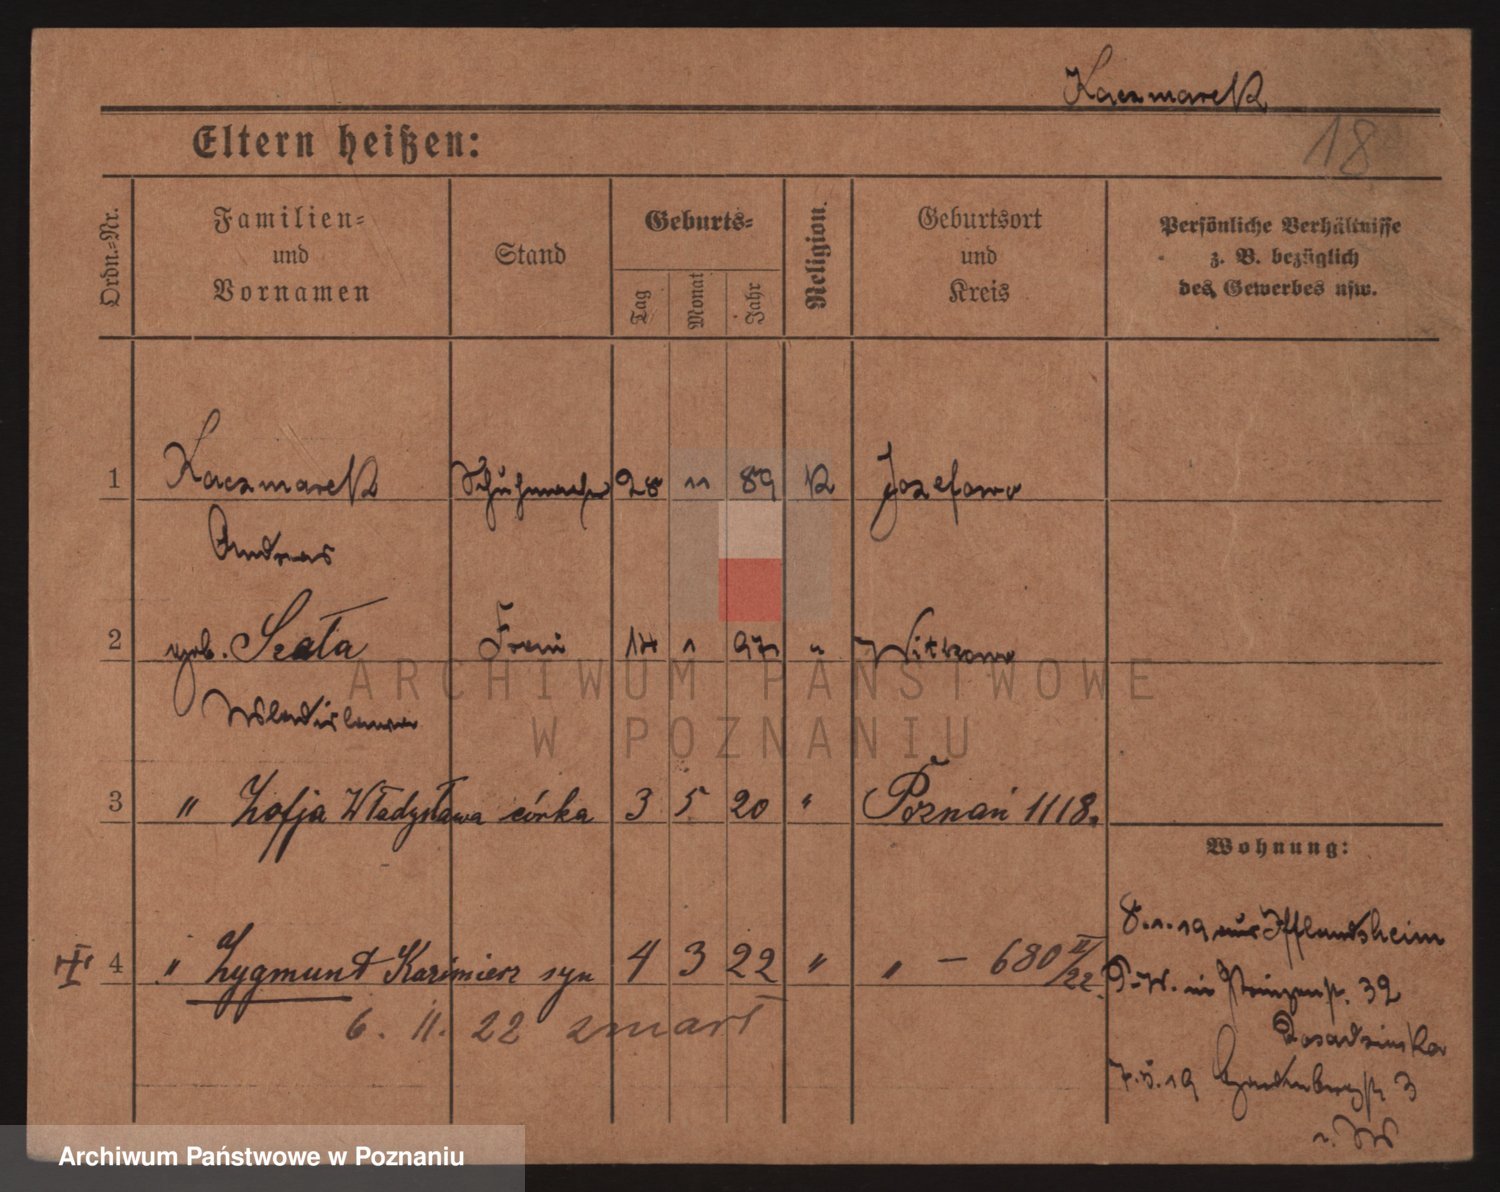 Kaczmarek
18
Eltern heißen:
Ordn.-Nr.
Familien- und Vornamen
Stand
Geburts-
Tag
Monat
Jahr
Religion.
Geburtsort und Kreis
Persönliche Verhältnisse z. B. bezüglich des Gewerbes usw.
1 Kaczmarek Schuhmacher 28 11 89 K Josefowo
Andreas
2 geb. Szała Frau 1 97 " Witkowo
Wladislawa
3 " Zofja Władysława córka 3 5 20 " Poznań 1118.
Wohnung:
8.1.19 aus Iflandsheim
4 " Zygmunt Kazimierz syn 4 3 22 " " — 680 II/22.
in Prinzenstr. 32
6. 11. 22 zmarł
Posadzinska
7.5.19 3
ARCHIWUM PAŃSTWOWE
W POZNANIU
Archiwum Państwowe w Poznaniu